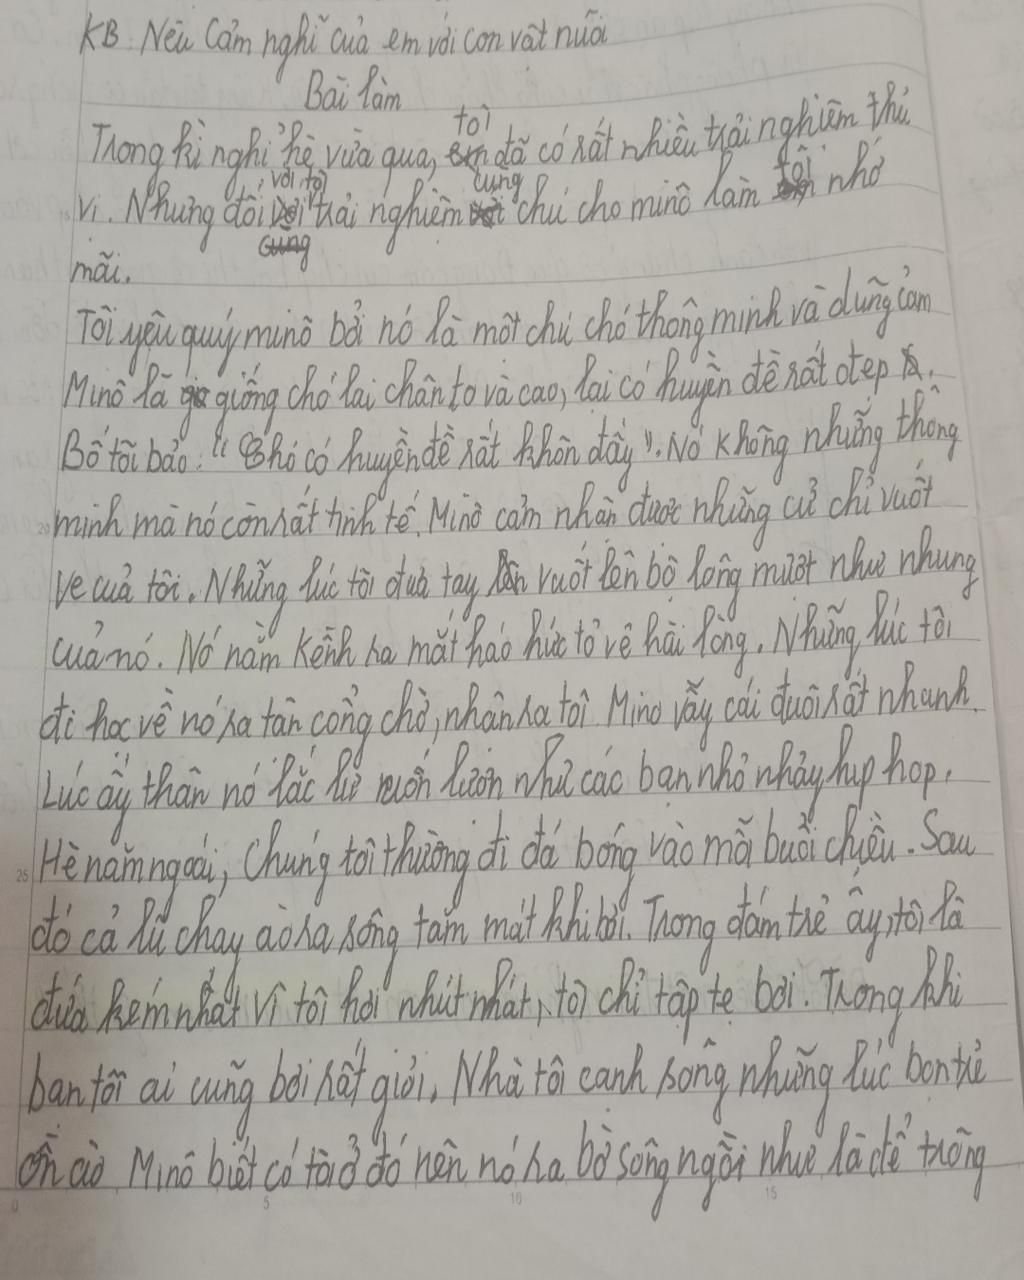 KB: Nêu Cảm nghĩ của em với con vật nuôi
Bài làm
Trong kì nghỉ hè vừa qua, tôi đã có rất nhiều trải nghiệm thú
vị. Nhưng đối với tôi trải nghiệm cùng chú chó minô làm tôi nhớ
mãi.
Tôi yêu quý minô bởi nó là một chú chó thông minh và dũng cảm
Minô là giống chó lai chân to và cao, lại có huyền đề rất đẹp.
Bố tôi bảo: "Chó có huyền đề rất khôn đấy". Nó không những thông
minh mà nó còn rất tinh tế. Minô cảm nhận được những cử chỉ vuốt
ve của tôi. Những lúc tôi đưa tay vuốt lên bộ lông mượt như nhung
của nó. Nó nằm kềnh ra mắt háo hức tỏ vẻ hài lòng. Những lúc tôi
đi học về nó ra tận cổng chờ, nhận ra tôi Mino vẫy cái đuôi rất nhanh.
Lúc ấy thân nó lắc lư uốn lượn như các bạn nhỏ nhảy hip hop.
Hè năm ngoái, Chúng tôi thường đi đá bóng vào mỗi buổi chiều. Sau
đó cả lũ chạy ào ra sông tắm mát khi bơi. Trong đám trẻ ấy, tôi là
đứa kém nhất vì tôi hơi nhút nhát, tôi chỉ tập tẹ bơi. Trong khi
bạn tôi ai cũng bơi rất giỏi, Nhà tôi cạnh sông những lúc bọn trẻ
ồn ào Minô biết có tôi ở đó nên nó ra bờ sông ngồi như là để trông